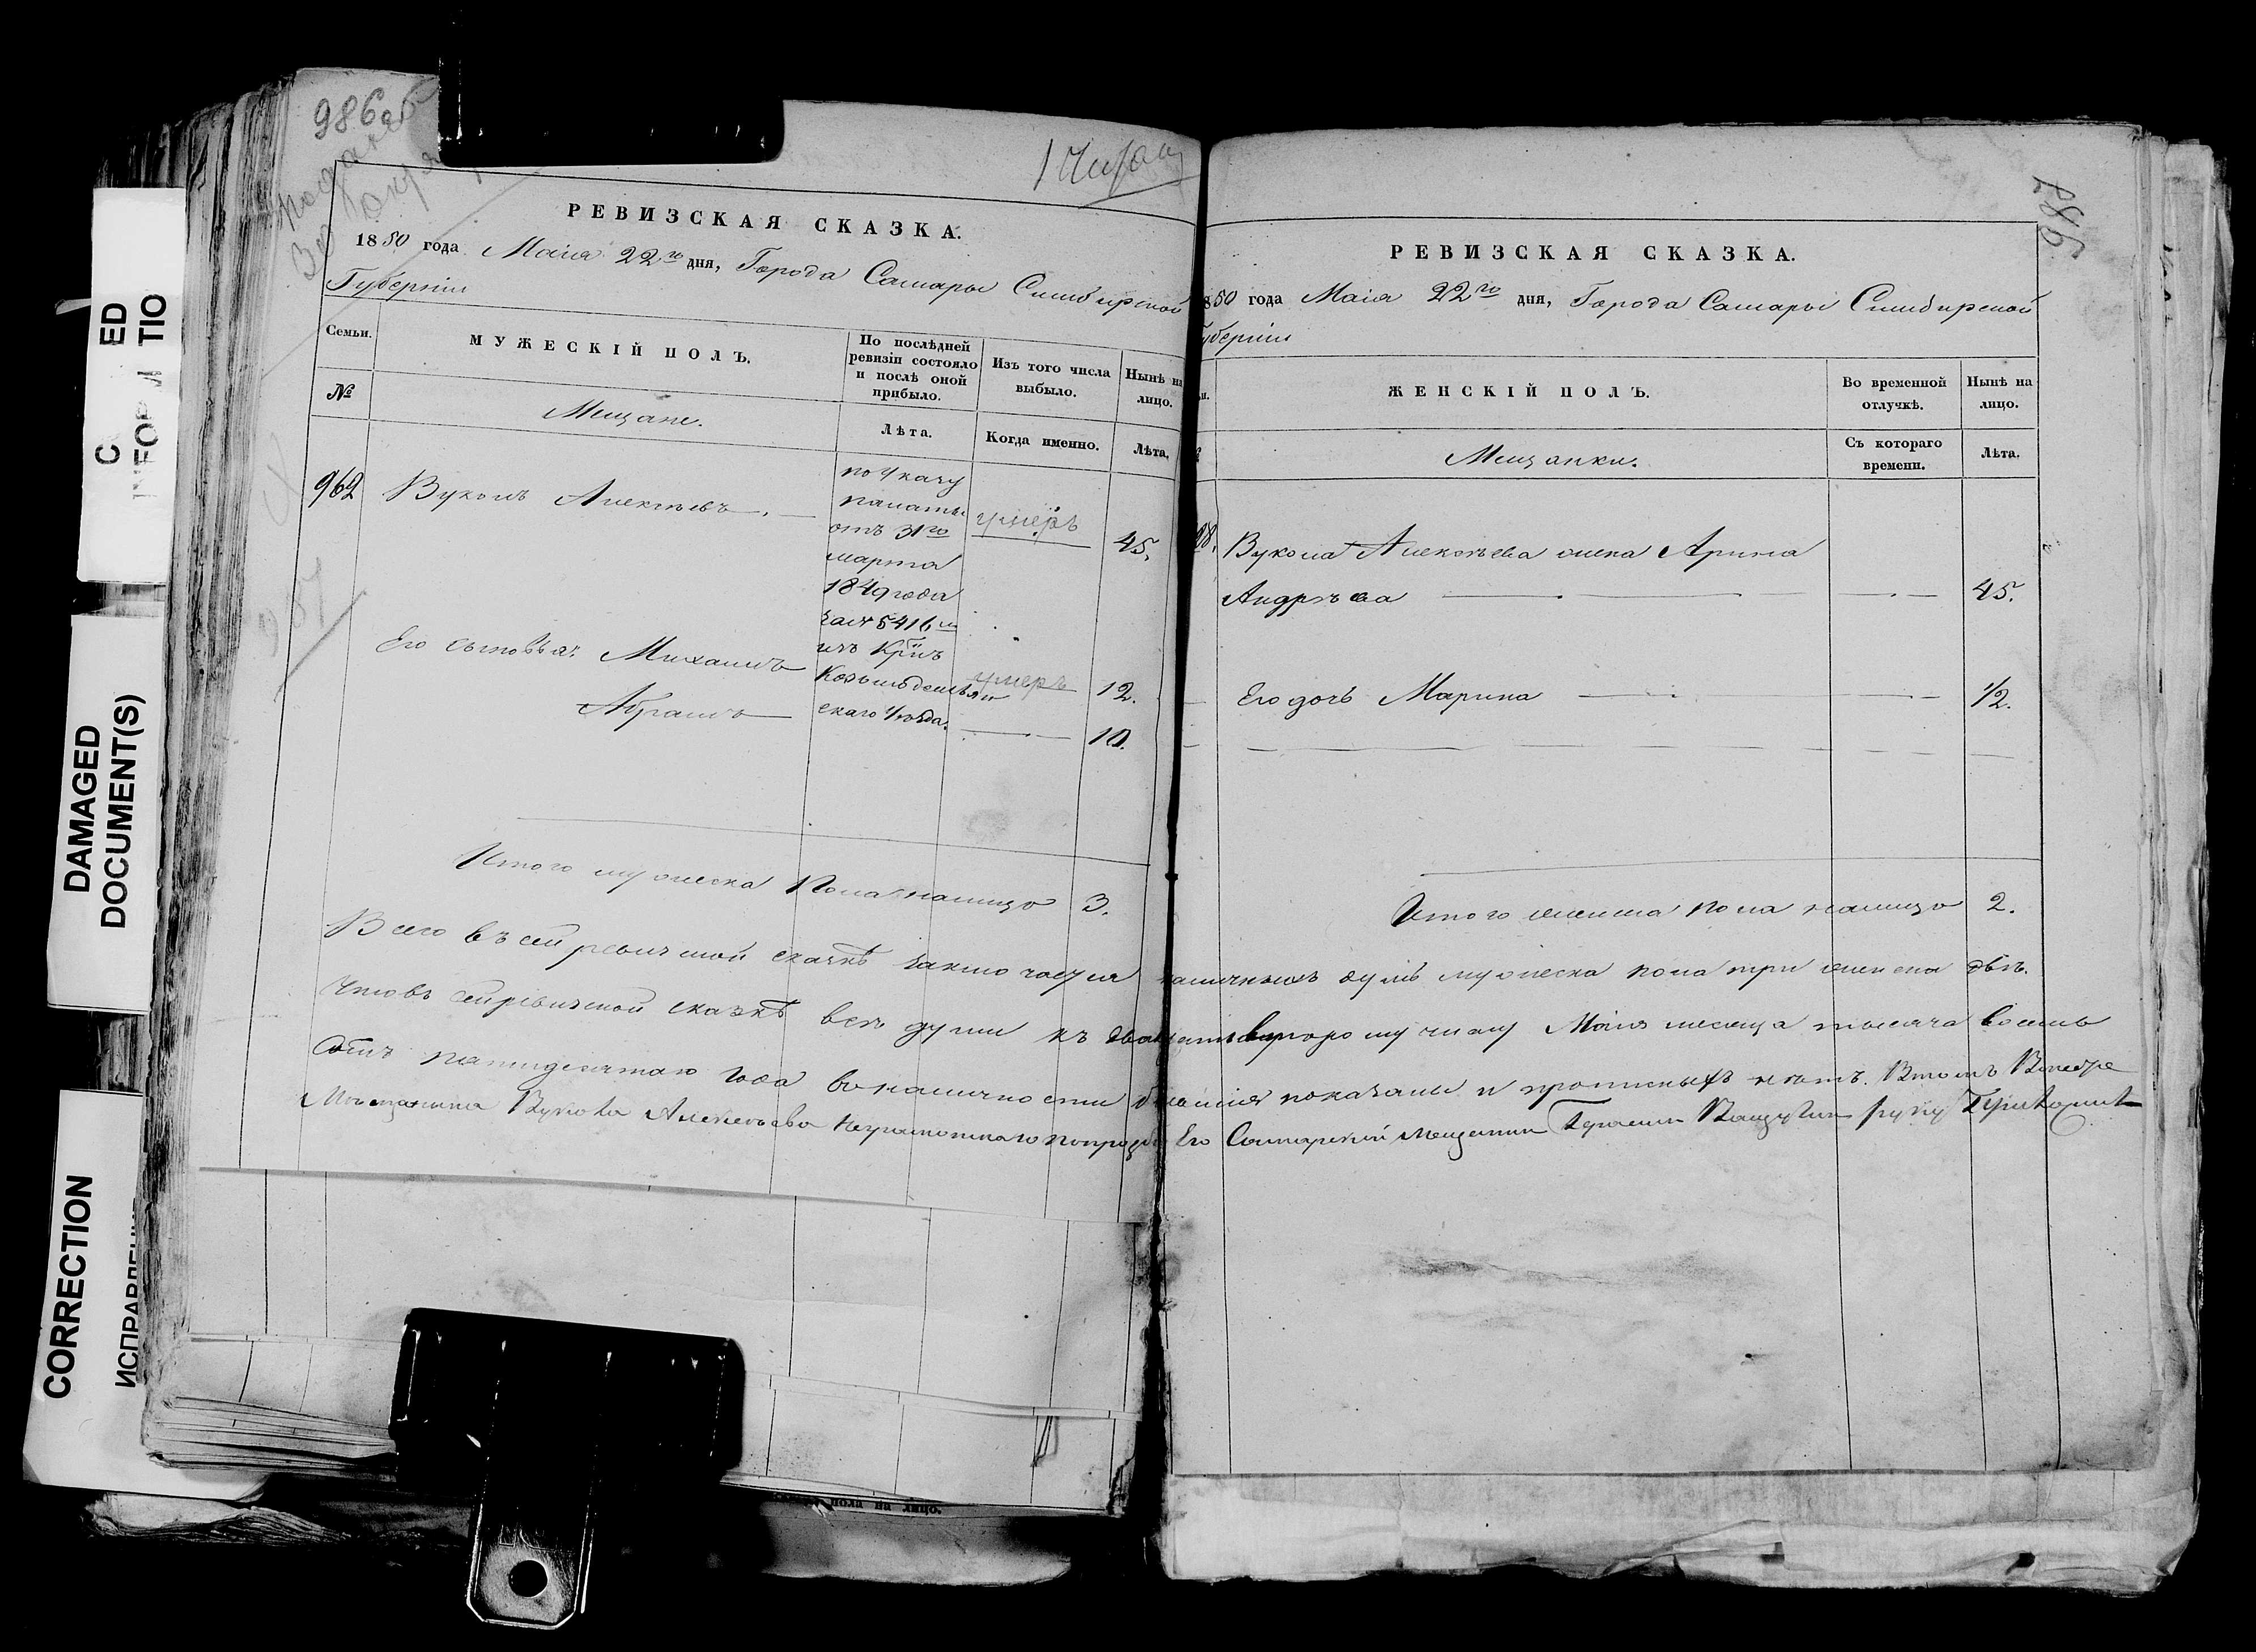 986 об
РЕВИЗСКАЯ СКАЗКА.
1850 года Маія 22го дня, Города Самары Симбирской
Губерніи
Семьи.
№
МУЖЕСКІЙ ПОЛЪ.
По послѣдней ревизіи состояло и послѣ оной прибыло.
Изъ того числа выбыло.
Нынѣ на лицо.
Мещане.
Лѣта.
Когда именно.
Лѣта.
962
Вуколъ Алексѣевъ
по указу
палаты
отъ 31го
марта
1849 года
за № 5416м
изъ Крѣнъ
Козьмодемьян
скаго Уѣзда.
умеръ
45.
Его сыновья: Михаилъ
умеръ
12.
Абрамъ
10.
Итого мужеска пола налицо 3.
987
РЕВИЗСКАЯ СКАЗКА.
850 года Маія 22го дня, Города Самары Симбирской
уберніи
ЖЕНСКІЙ ПОЛЪ.
Во временной отлучкѣ.
Нынѣ на лицо.
Мещанки.
Съ котораго времени.
Лѣта.
Вукола Алексѣева жена Арина
Андрѣева
45.
Его дочь Марина
1/2.
Итого женска пола налицо 2.
Всего въ сей ревизской сказкѣ заключается наличныхъ душъ мужеска пола три женска двѣ.
Что въ сей ревизской сказкѣ всѣ души къ двадцать второму числу Маія месяца тысяча восемь
сотъ пятидесятаго года в наличности бывшія показаны и прописныхъ нѣтъ. В томъ В
Мещанина Вукола Алексѣева неграмотнаго по прозбе Его Самарский мещанин руку приложилъ
C ED
INFOR A TIO
DAMAGED
DOCUMENT(S)
CORRECTION
ИСПРАВЛЕНИЕ
пола на лицо.